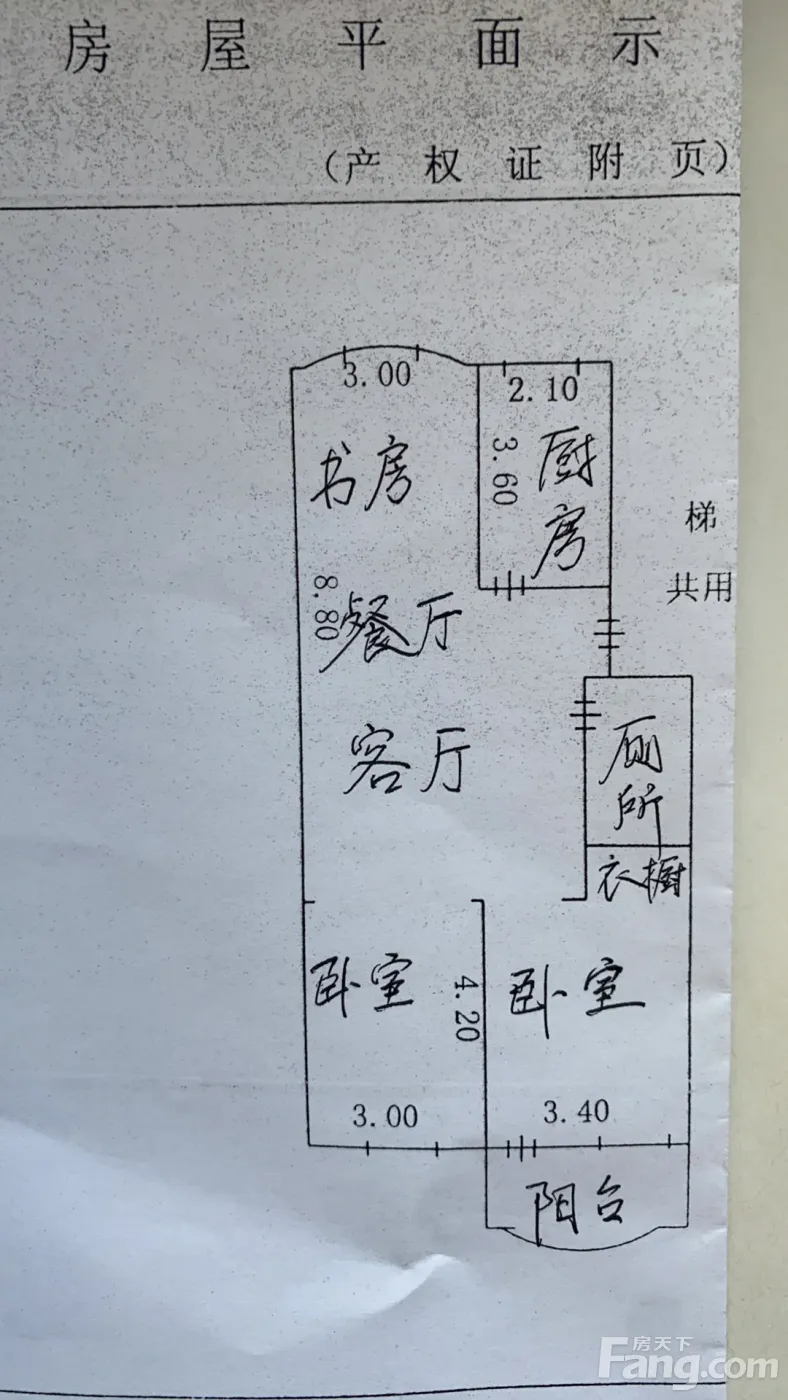 房屋平面示
（产权证附页）
3.00
2.10
书房
3.60
厨房
梯
共用
8.80
餐厅
客厅
厕所
衣橱
卧室
4.20
卧室
3.00
3.40
阳台
房天下
Fang.com